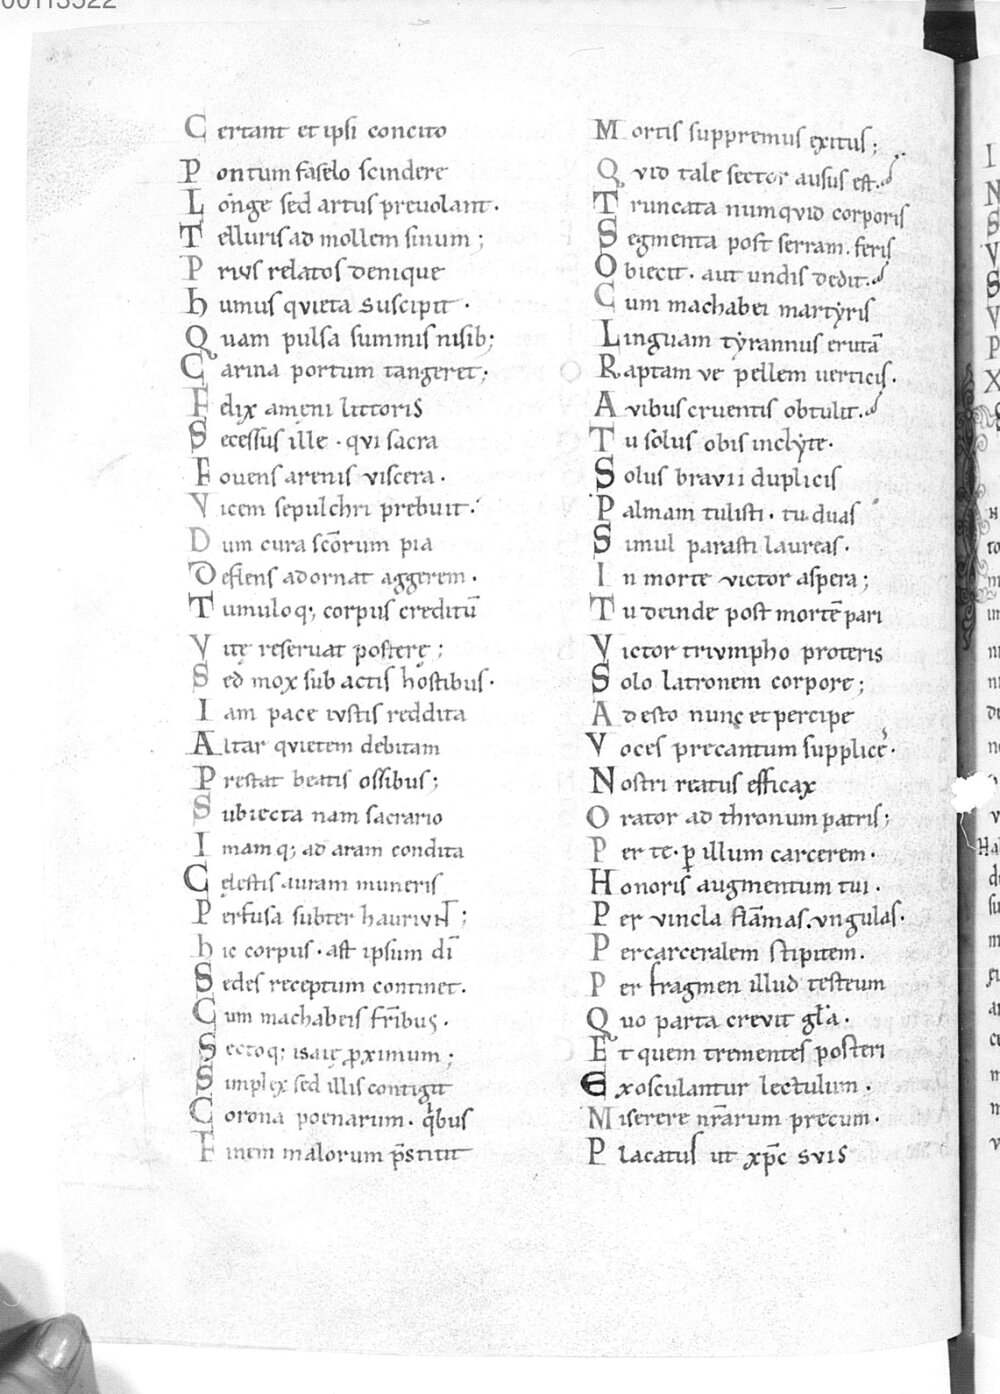 00113522
Certant et ipsi concito
Pontum faselo scindere
Longe sed artus prevolant.
Telluris ad mollem sinum;
Prius relatos denique
humus quieta suscipit.
Quam pulsa summis nisib;
Carina portum tangeret;
Felix ameni littoris
Secessus ille. qui sacra
Fovens arenis viscera.
Vicem sepulchri prebuit.
Dum cura scōrum pia
Deflens adornat aggerem.
Tumuloq; corpus creditū
Vitę reservat posterę;
Sed mox subactis hostibus.
Iam pace iustis reddita
Altar quietem debitam
Prestat beatis ossibus;
Subiecta nam sacrario
Imamq; ad aram condita
Cęlestis auram muneris
Perfusa subter hauriunt;
hic corpus. ast ipsum dī
Sedes receptum continet.
Cum machabeis fr̄ibus.
Sectoq; isaię ꝓximum;
Simplex sed illis contigit
Corona poenarum. qͥbus
Finem malorum p̄stitit
Mortis suppremus exitus;
Quid tale sector ausus est.
Truncata numquid corporis
Segmenta post serram. feris
Obiecit. aut undis dedit.
Cum machabei martyris
Linguam tyrannus erutā
Raptam ve pellem verticis.
Avibus cruentis obtulit.
Tu solus obis inclyte.
Solus bravii duplicis
Palmam tulisti. tu duas
Simul parasti laureas.
In morte victor aspera;
Tu deinde post mortē pari
Victor triumpho proteris
Solo latronem corpore;
Adesto nunc et percipe
Voces precantum supplicę.
Nostri reatus efficax
Orator ad thronum patris;
Per te. ꝑ illum carcerem.
Honoris augmentum tui.
Per vincla flāmas. ungulas.
Per carceralem stipitem.
Per fragmen illud testeum
Quo parta crevit gl̄a.
Et quem trementes posteri
Exosculantur lectulum.
Miserere nr̄arum precum.
Placatus ut xp̄c suis